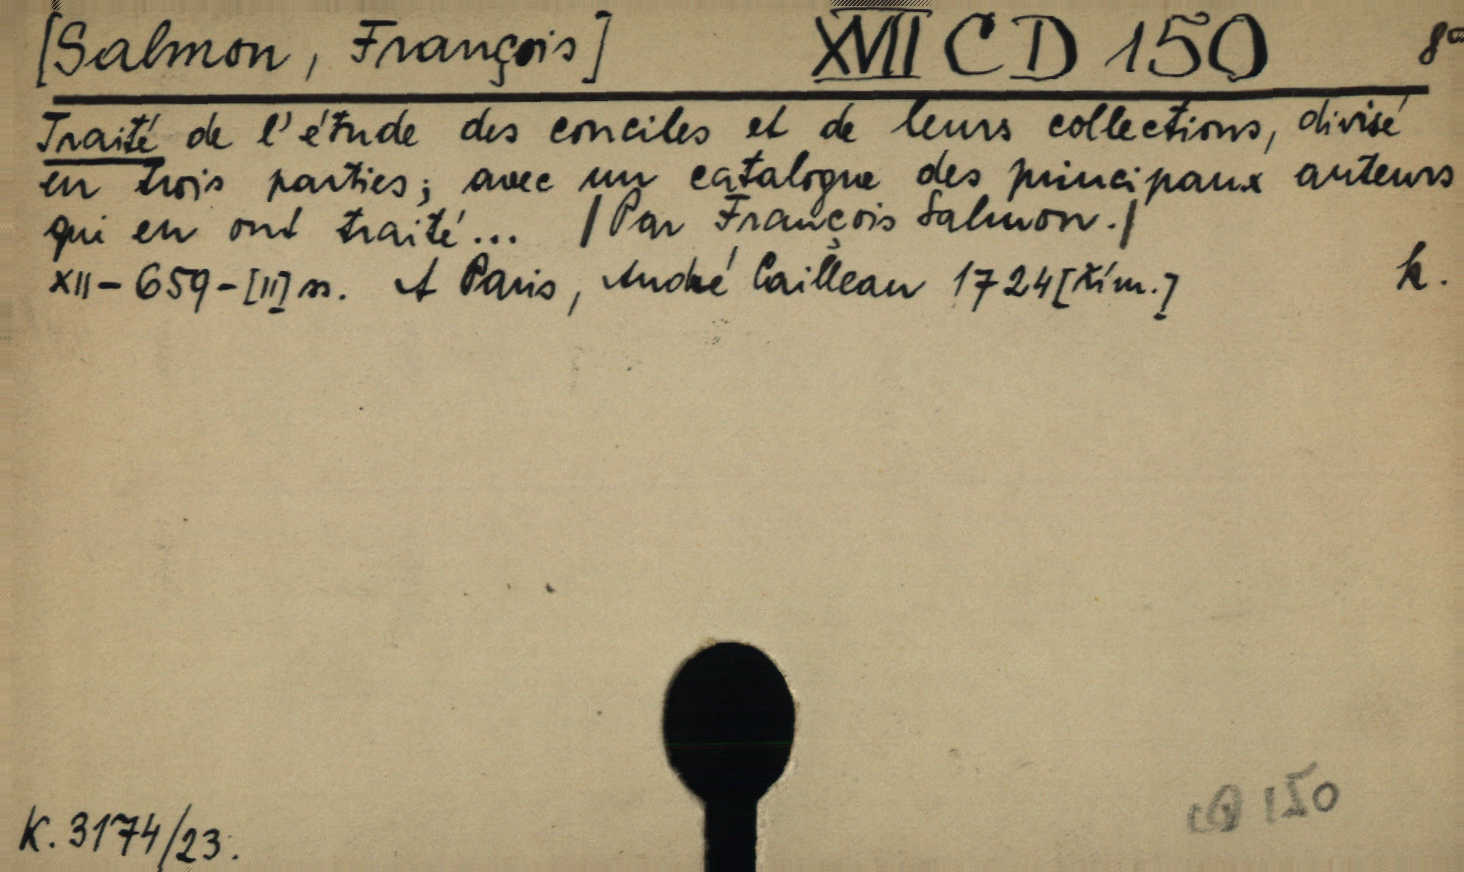 [Salmon, François] XVII CD 150 8°
Traité de l'étude des conciles et de leurs collections, divisé
en trois parties; avec un catalogue des principaux auteurs
qui en ont traité... /Par François Salmon./
XII-659-[II] ss. A Paris, André Cailleau 1724 [řím.] k.
CD 150
K. 3174/23.